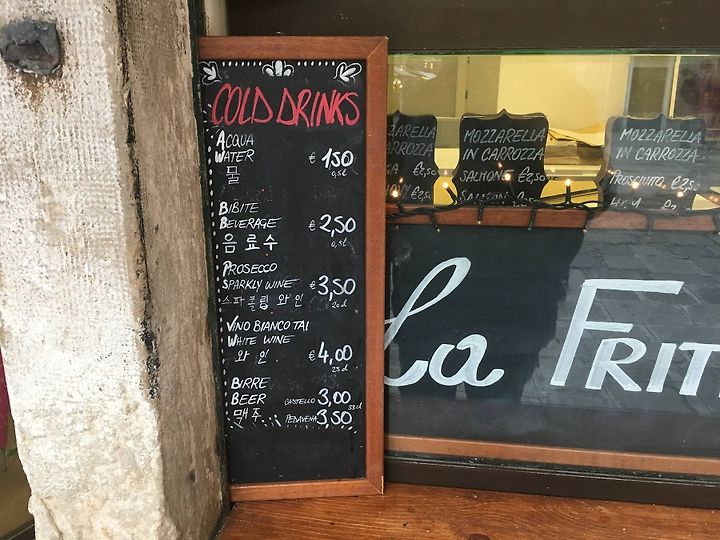 COLD DRINKS
ACQUA
WATER € 1,50
물 0,5l
BIBITE
BEVERAGE € 2,50
음료수 0,5l
PROSECCO
SPARKLY WINE € 3,50
스파클링 와인 20cl
VINO BIANCO TAI
WHITE WINE
와인 € 4,00
25cl
BIRRE
BEER CASTELLO 3,00
33cl
맥주 PEDAVENA 3,50
MOZZARELLA
CARROZZA
€2,50
MOZZARELLA
IN CARROZZA
SALMONE €2,50
MOZZARELLA
IN CARROZZA
PROSCIUTTO €2,50
La FRIT